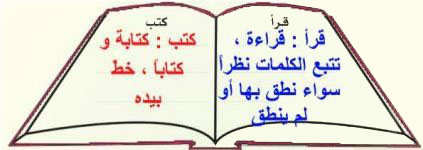 قرأ
قرأ : قراءة ،
تتبع الكلمات نظرأ
سواء نطق بها أو
لم ينطق
كتب
كتب : كتابة و
كتاباً ، خط
بيده